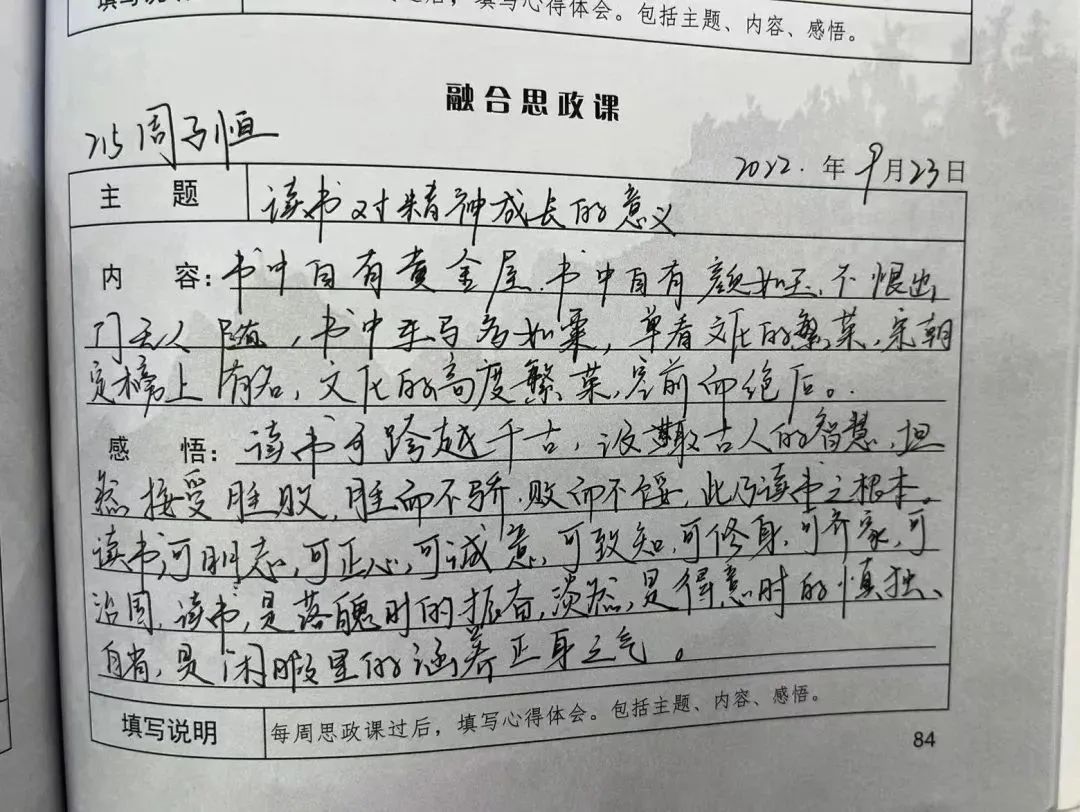 填写心得体会。包括主题、内容、感悟。
融合思政课
215周子恒
2022.年9月23日
主 题 读书对精神成长的意义
内 容：书中自有黄金屋.书中自有颜如玉、不恨出
门无人随，书中车马多如粟，单看文化的繁荣,宋朝
实榜上有名，文化的高度繁荣,空前而绝后。
感 悟：读书可跨越千古，汲取古人的智慧,坦
然接受胜败,胜而不骄,败而不馁,此乃读书之根本。
读书,可明志,可正心,可诚意,可致知,可修身,可齐家,可
治国,读书,是落魄时的振奋,淡然,是得意时的慎独、
自省,是闲暇里的涵养正身之气。
填写说明 每周思政课过后，填写心得体会。包括主题、内容、感悟。
84